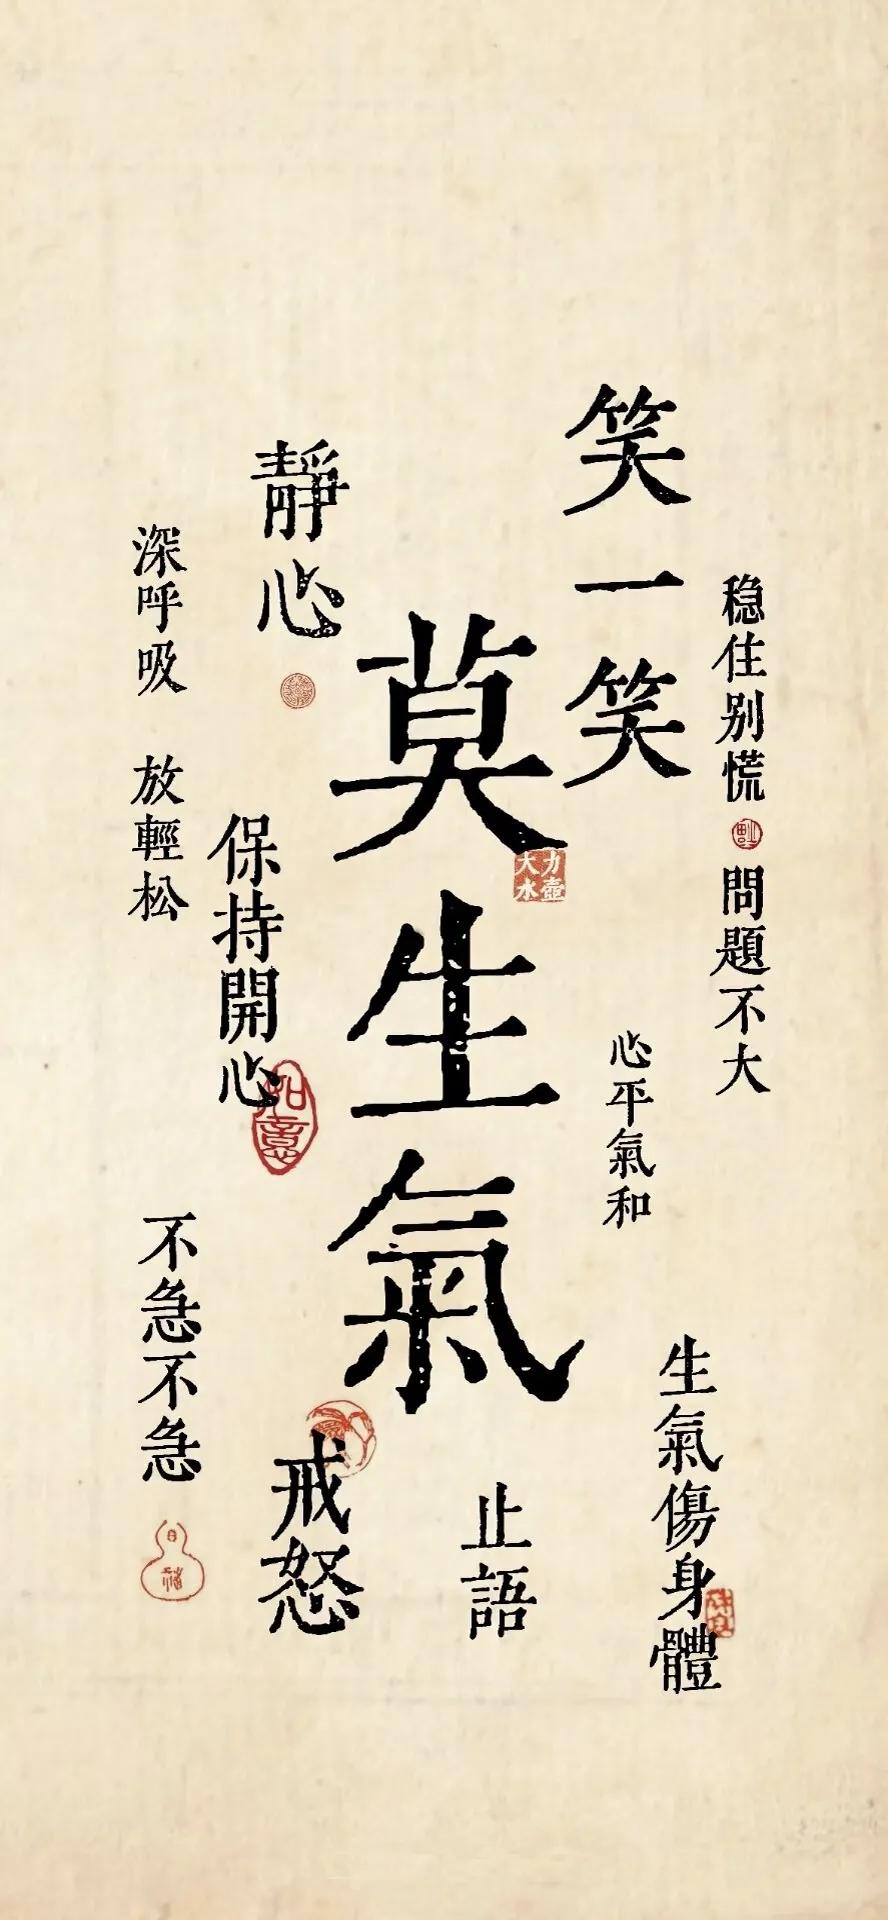 笑一笑
稳住别慌
問題不大
莫生氣
心平氣和
靜心
深呼吸 放輕松
保持開心
如意
不急不急
戒怒
止語
生氣傷身體
力壺
大水